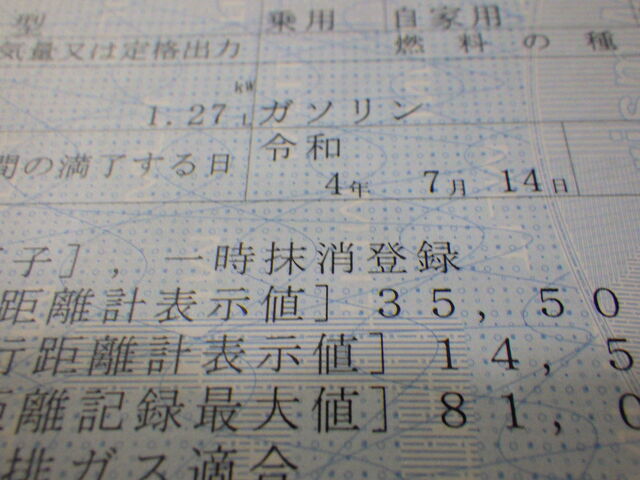 型 乗用 自家用
気量又は定格出力 燃料の種
kW
1.27 L ガソリン
間の満了する日 令和
4年 7月 14日
子］，一時抹消登録
距離計表示値］35，50
行距離計表示値］14，5
距離記録最大値］81，0
排ガス適合